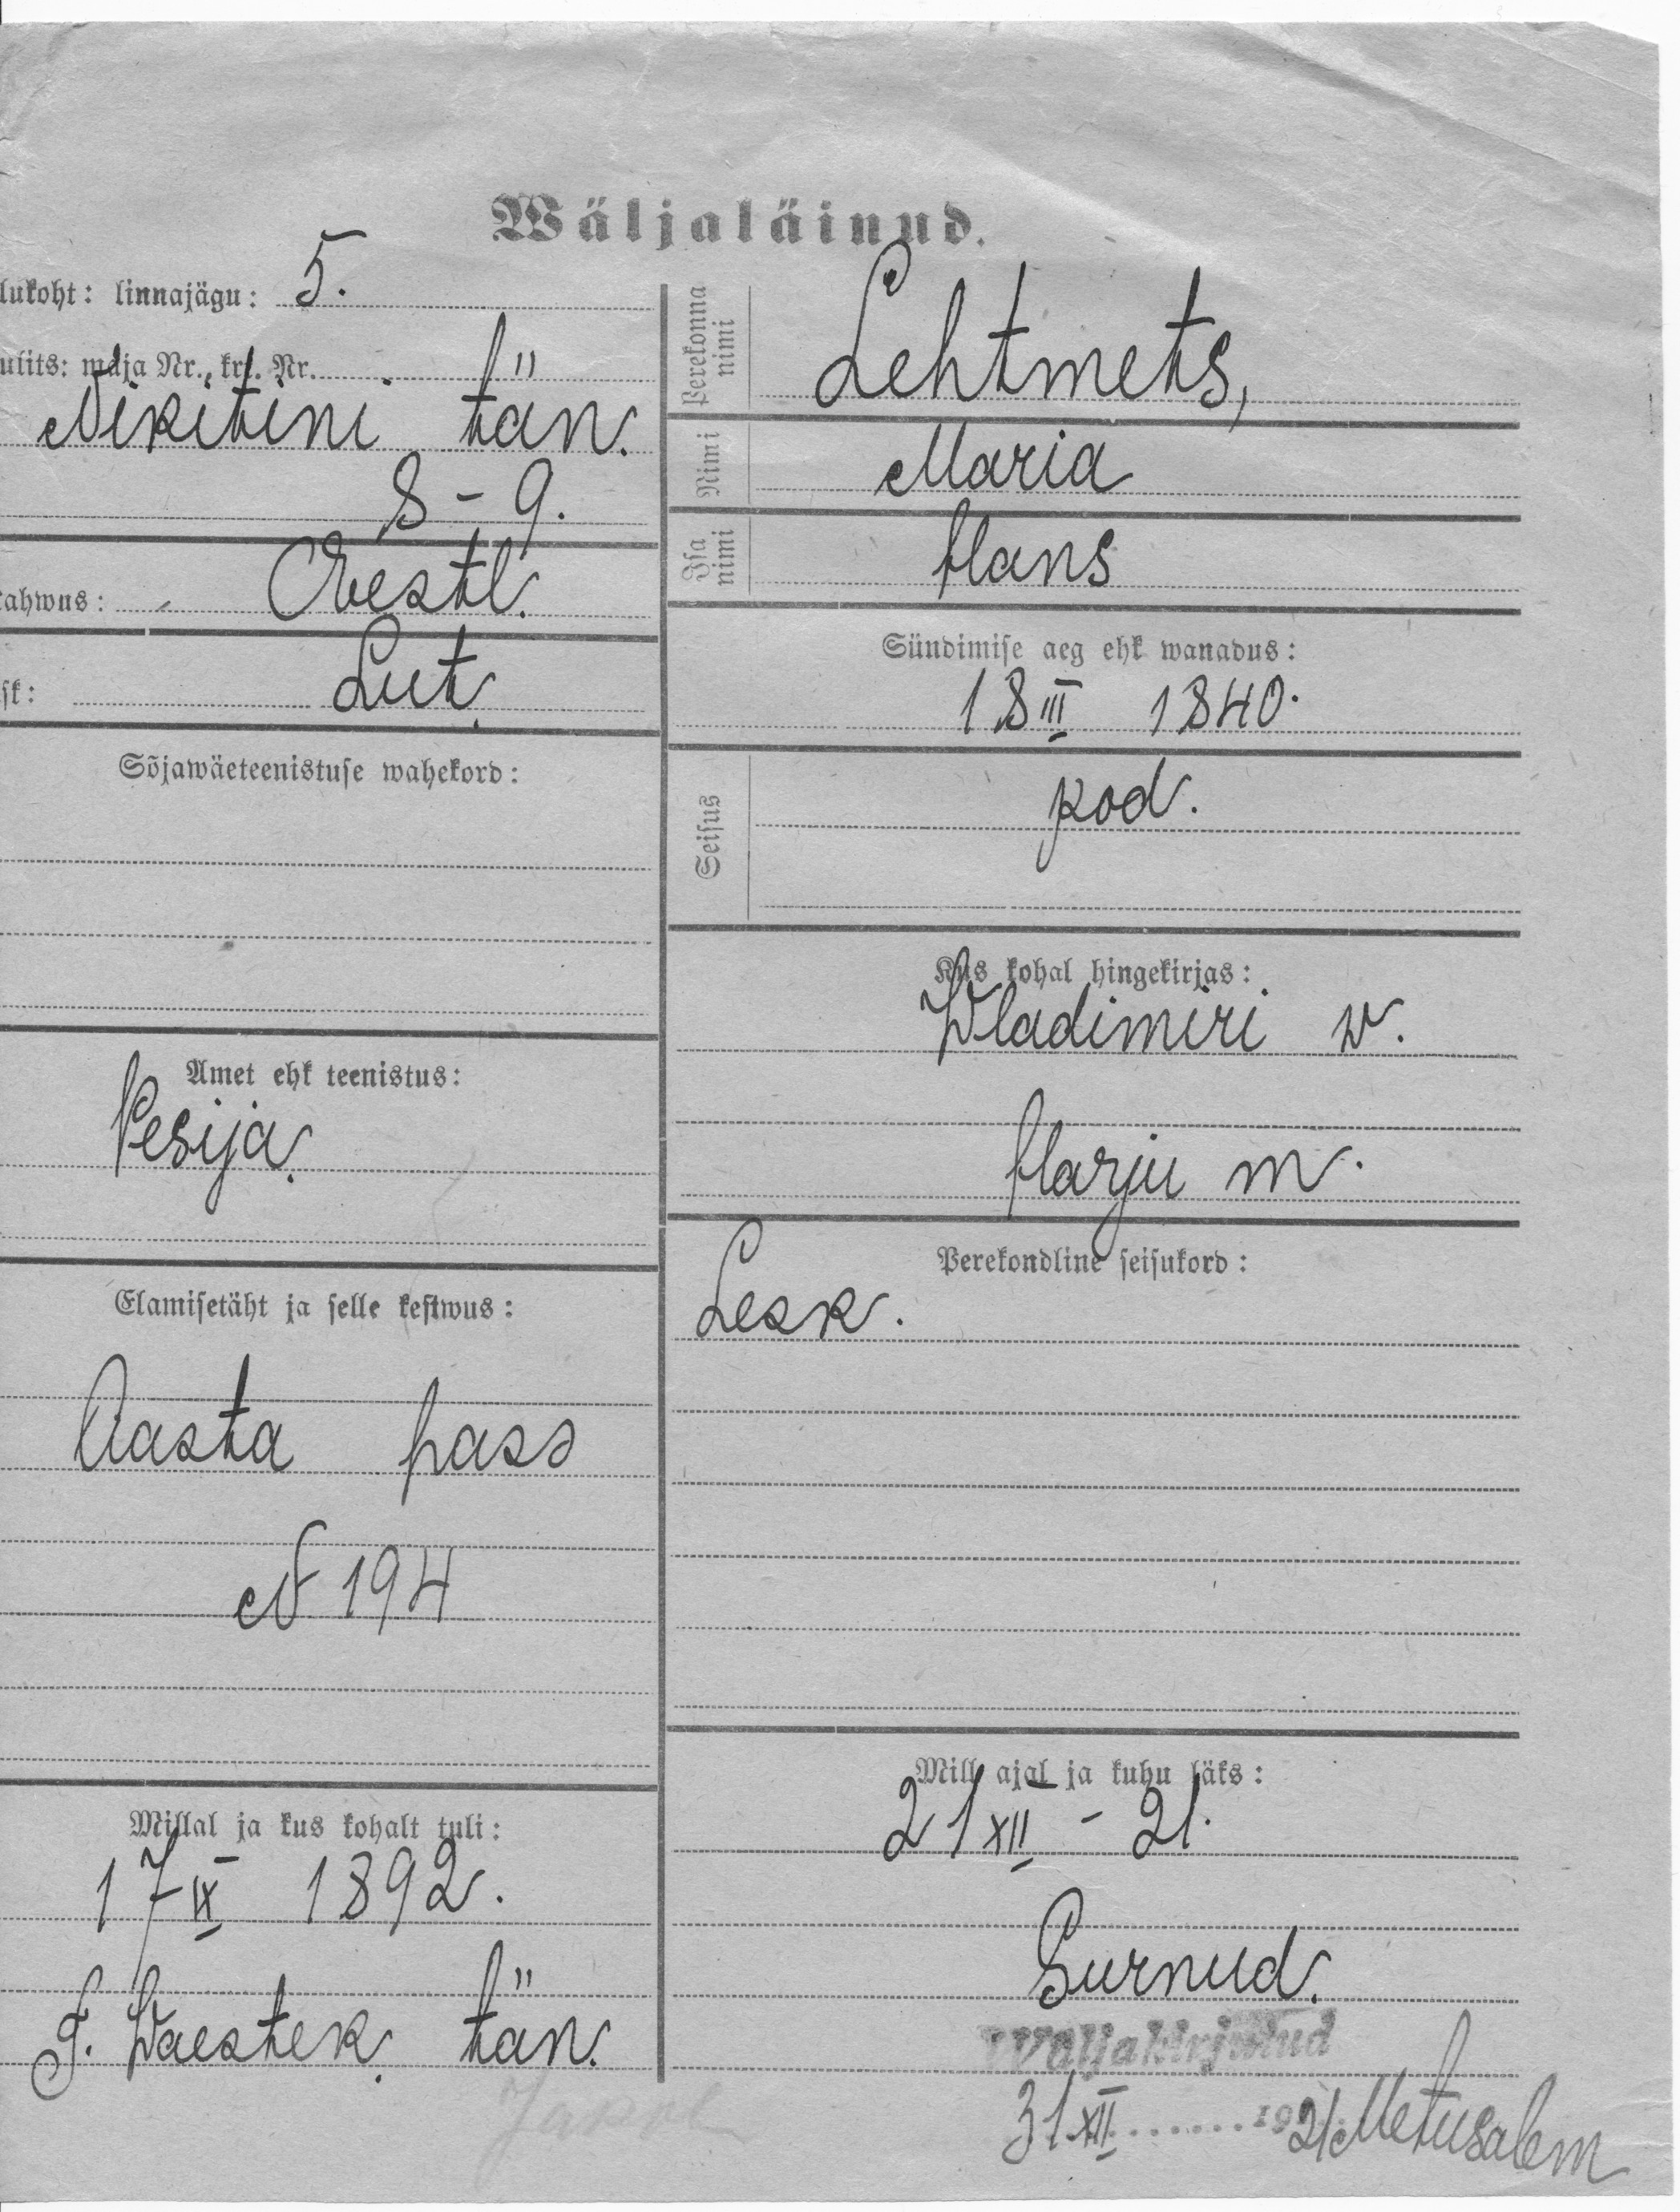 Wäljaläinud.
lukoht: linnajägu: 5.
ulits: maja Nr., krt. Nr.
Nikitini tän.
8 – 9.
ahwus: Eestl.
sk: Lut.
Sõjawäeteenistuse wahekord:
Amet ehk teenistus:
Pesija.
Elamisetäht ja selle kestwus:
Aasta pass
N 194
Millal ja kus kohalt tuli:
17 IX 1892.
J. Waestek. tän.
Perekonna nimi
Lehtmets,
Nimi
Maria
Isa nimi
Hans
Sündimise aeg ehk wanadus:
18 III 1840.
Seisus
kod.
Kus kohal hingekirjas:
Wladimiri w.
Harju m.
Perekondline seisukord:
Lesk.
Mill ajal ja kuhu läks:
21 XII – 21.
Surnud.
Wäljakirjutud
31 XII ....... 1921 Metusalem